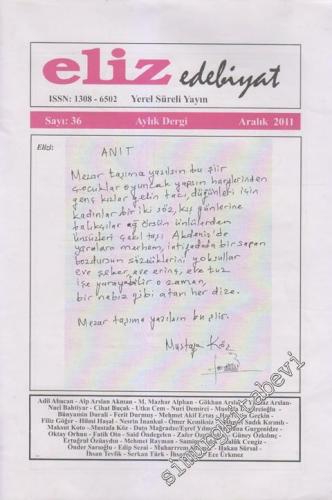 eliz edebiyat
ISSN: 1308 - 6502 Yerel Süreli Yayın
Sayı: 36 Aylık Dergi Aralık 2011
Elizi:
ANIT
Mezar taşıma yazılsın bu şiir
çocuklar oyuncak yapsın harflerinden
genç kızlar gelin tacı, düğünleri için
kadınlar bir iki söz, kış günlerine
balıkçılar ağ örsün ünlülerden
ünsüzleri çakıl taşı Akdeniz'de
yaralara merhem, intifadada bir sapan
bozdursun sözcüklerini yoksullar
eve şeker, ave erinç, eve tuz
işe yarayabilir o zaman,
bir nabız gibi atan her dize.
Mezar taşıma yazılsın bu şiir.
Mustafa Köz
Adil Abacan - Alp Arslan Akman - M. Mazhar Alphan - Gökhan Arslan
Nael Bahtiyar - Cihat Buçak - Utku Cem - Nuri Demirci - Mustafa
Bünyamin Durali - Ferit Durmuş - Mehmet Akif Ertaş - Gerçekin
Filiz Göğer - Hüsnü Haşal - Nesrin İnankul - Ömer Kemiksiz Sadık Kırımlı
Maksut Koto - Mustafa Köz - Gargonnidze
Oktay Orhun - Fatih Oto - Said Öndegelen - Zafer Güney Özkılınç -
Ertuğrul Özüaydın - Mehmet Rayman - Salih Cengiz -
Önder Saruoğlu - Edip Sezai - Muharrem Hakan Sürsal -
İhsan Tevfik - Serkan Türk - İhsan Ece Ürkmez
simurgkitabevi